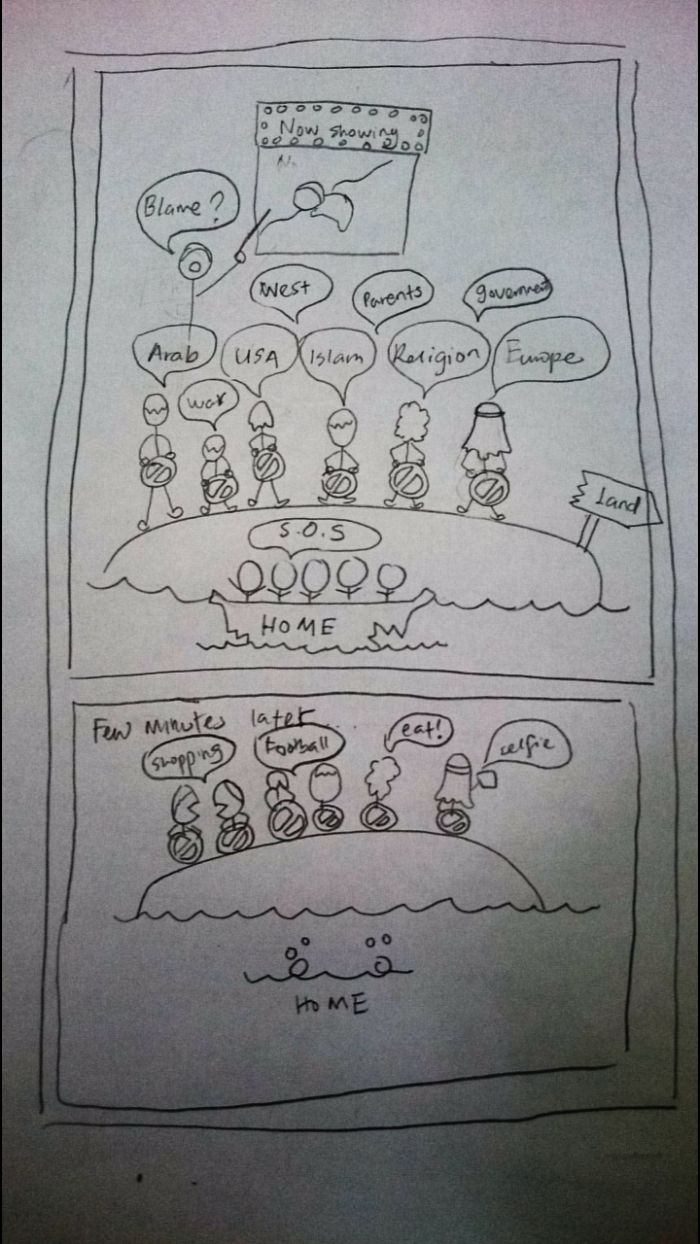 Now showing
Blame?
West
Parents
government
Arab
USA
Islam
Religion
Europe
war
land
S.O.S
HOME
Few minutes later...
shopping
Football
eat!
selfie
HOME